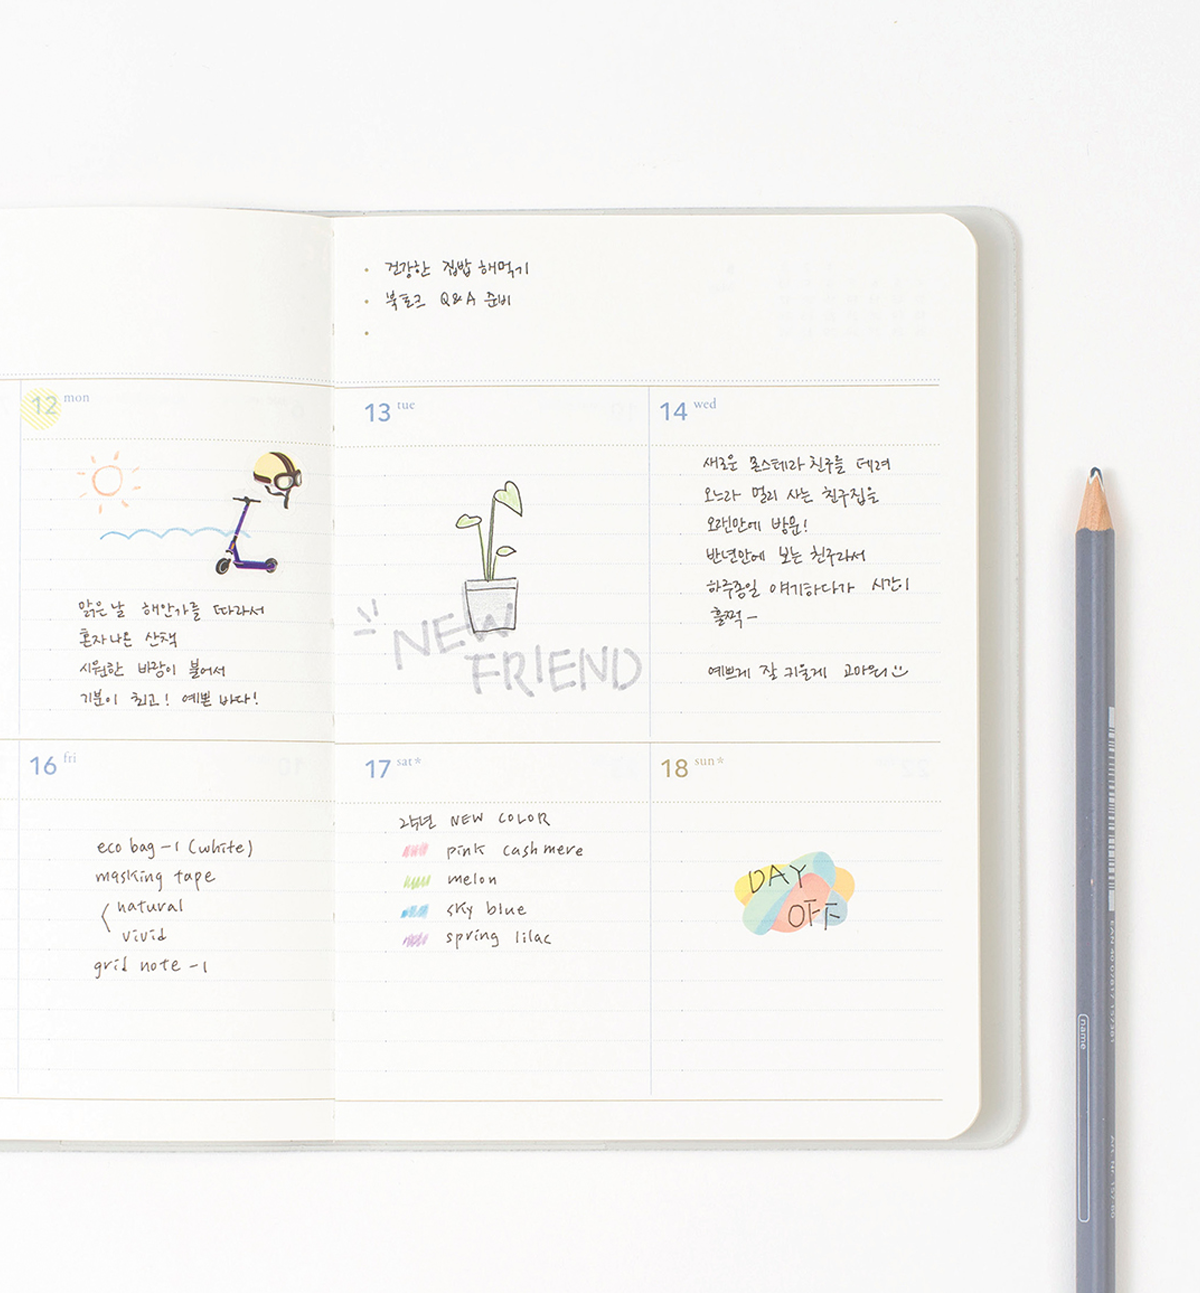 건강한 집밥 해먹기
북토크 Q&A 준비
12 mon
맑은날 해안가를 따라서
혼자나온 산책
시원한 바람이 불어서
기분이 최고! 예쁜 바다!
13 tue
NEW
FRIEND
14 wed
새로운 몬스테라 친구를 데려
오느라 멀리 사는 친구집을
오랜만에 방문!
반년만에 보는 친구라서
하루종일 얘기하다가 시간이
훌쩍-
예쁘게 잘 키울게 고마워
16 fri
eco bag -1 (white)
masking tape
natural
vivid
grid note -1
17 sat*
NEW COLOR
pink cashmere
melon
sky blue
spring lilac
18 sun*
DAY
OFF
name